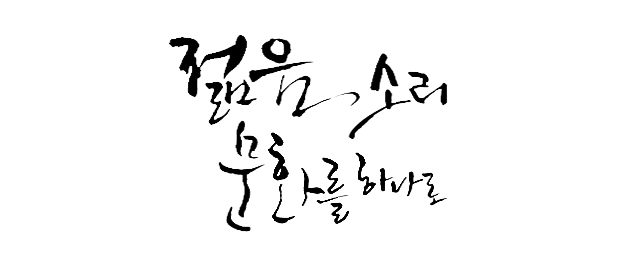 젊음, 소리
문화를 하나로